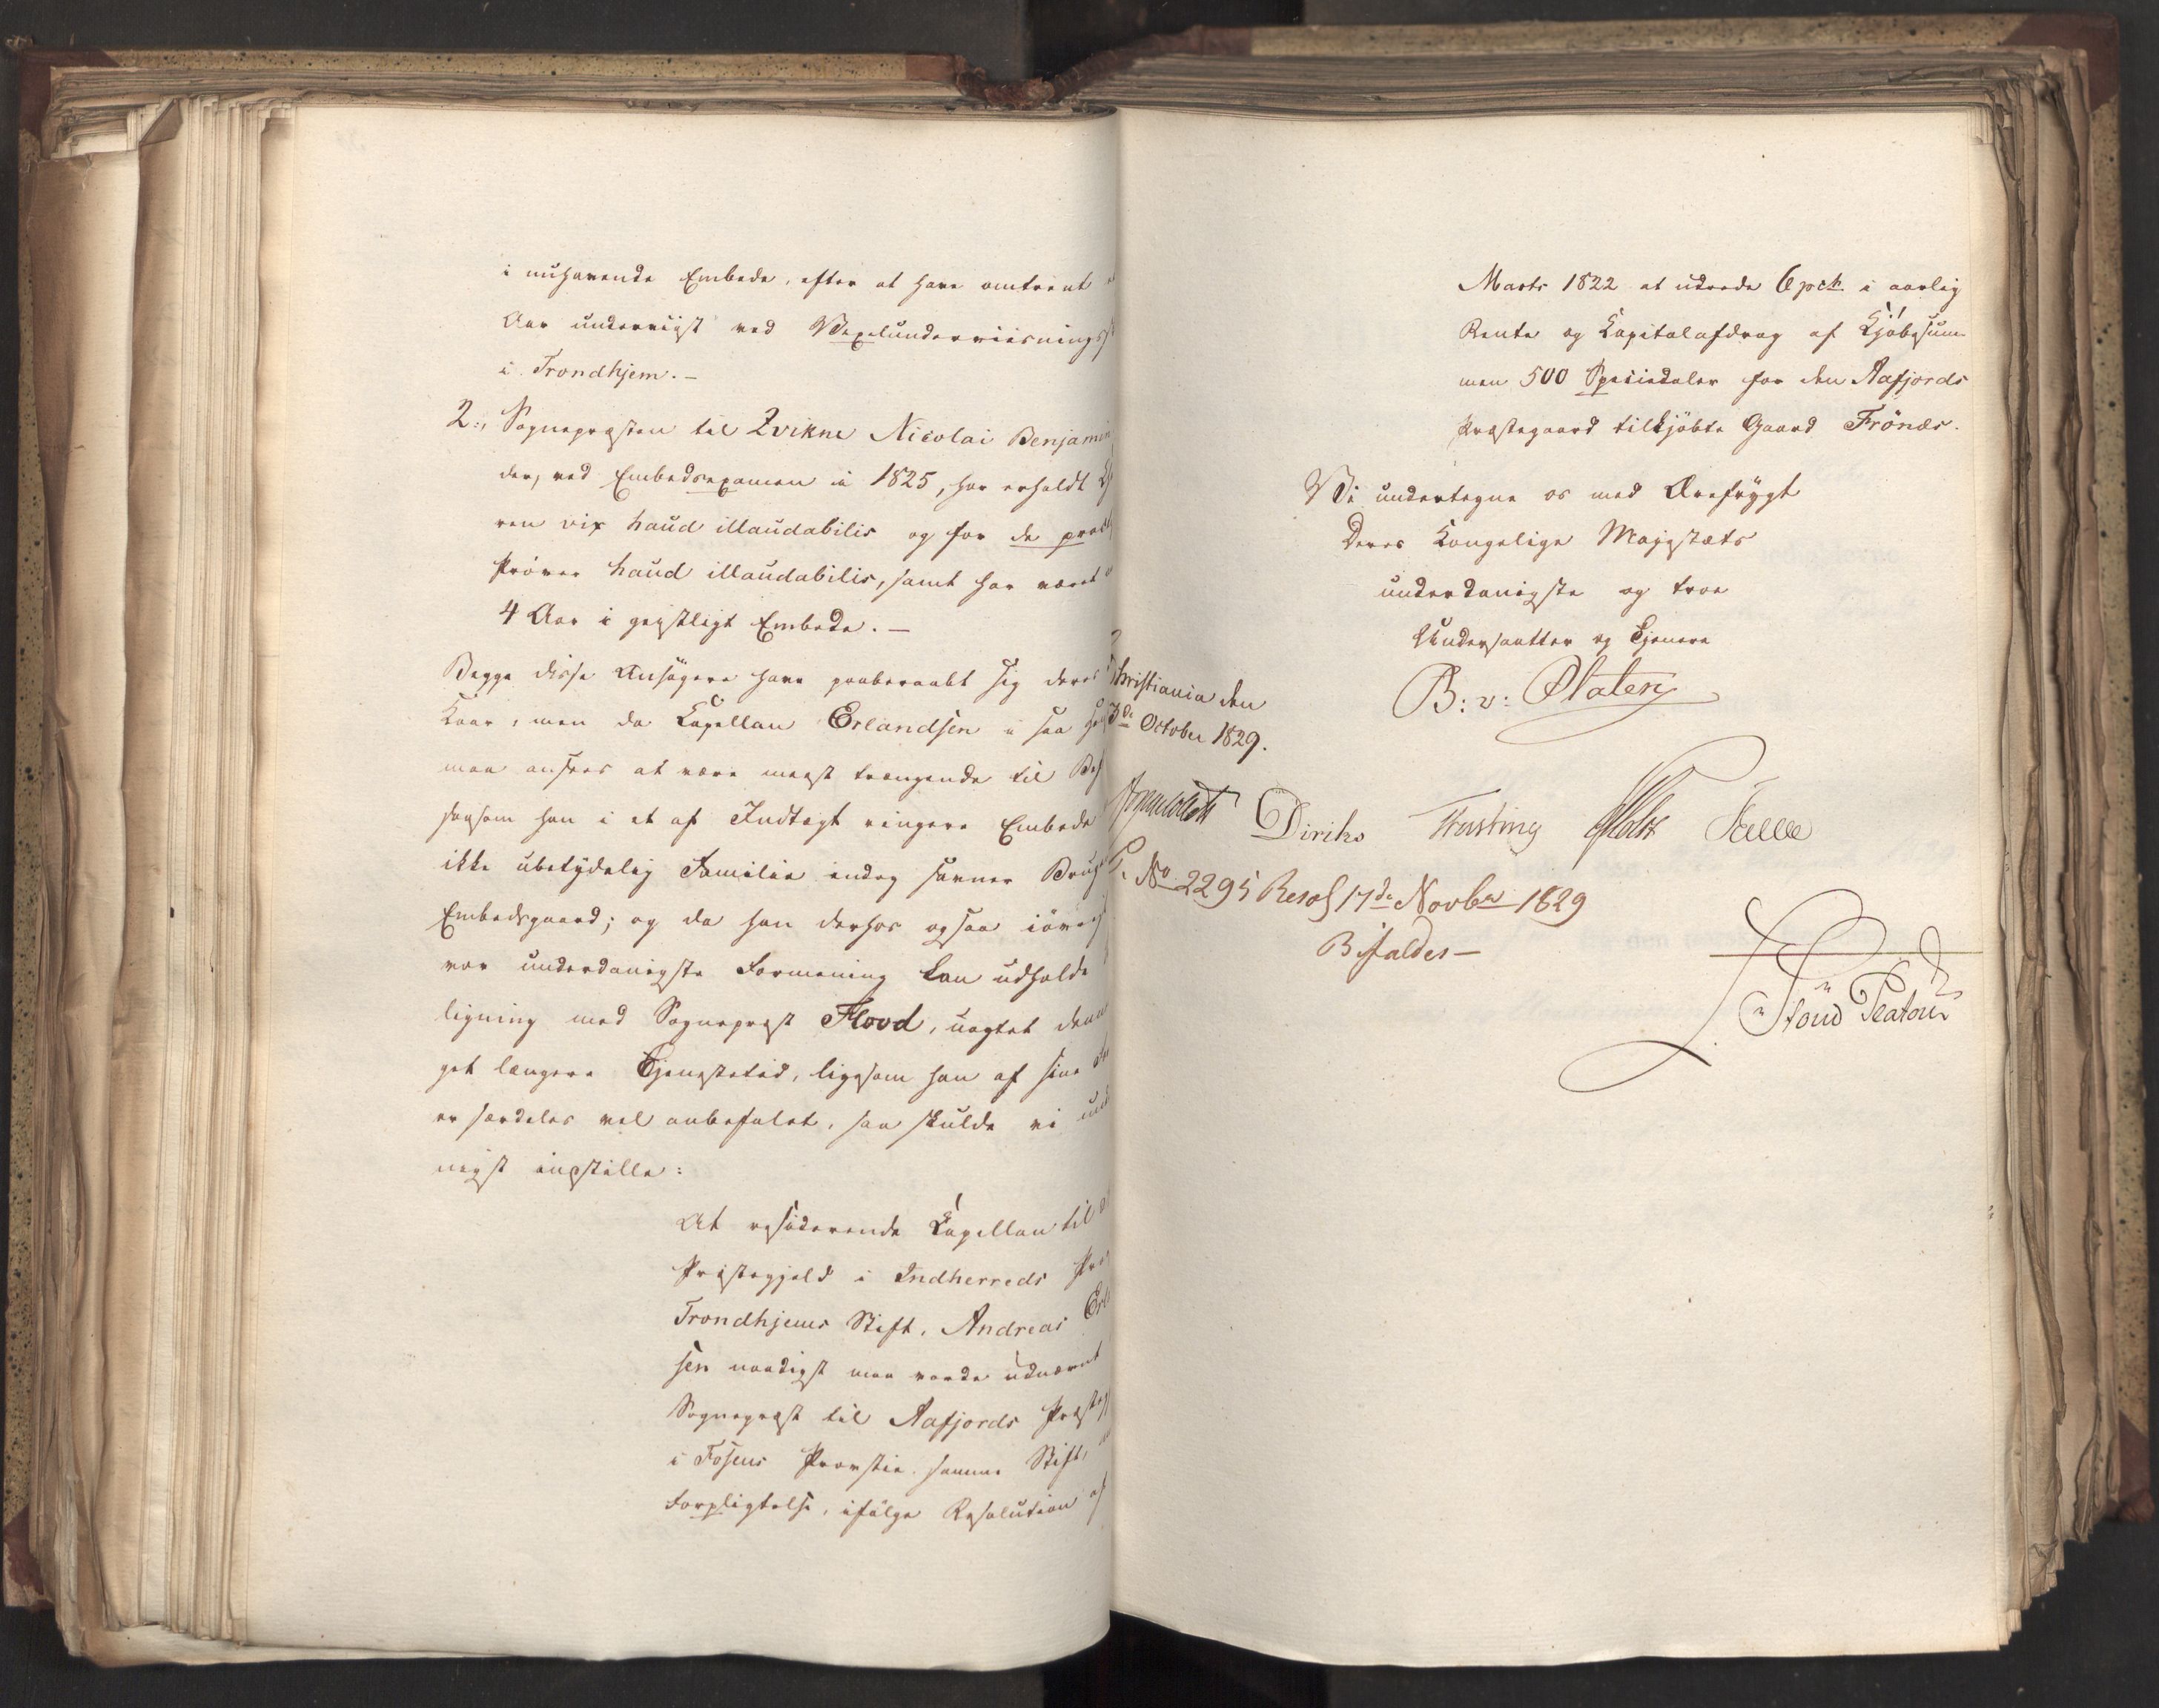 i nuhavende Embede, efter at have omtrent
Aar underviist ved Vexelunderviisnings
i Trondhjem. –
2., Sognepræsten til Qvikne Nicolai Benjamin
der, ved Embedsexamen i 1825, har erholdt
ren vix haud illaudabilis og for de pract
Prøver haud illaudabilis, samt har været
4 Aar i geistligt Embede. –
Begge disse Ansøgere have paaberaabt sig deres
Kaar, men da Kapellan Erlandsen i saa
maa ansees at være meest trængende til
saasom han i et af Indtægt ringere Embede
ikke ubetydelig Familie endog savner Brug
Embedsgaard; og da han derhos ogsaa iøvrigt
vor underdanigste Formening kan udholde
ligning med Sognepræst Flood, uagtet denn
get længere Tjenestetid, ligesom han af sine
er særdeles vel anbefalet, saa skulde vi und
nigst indstille:
At residerende Kapellan til
Præstegjeld i Indherreds Pro
Trondhjems Stift, Andreas Erl
sen naadigst maa vorde udnævnt
Sognepræst til Aafjords Præsteg
i Fosens Provstie samme Stift,
Forpligtelse, ifølge Resolution af
Marts 1822 at udrede 6 pct. i aarlig
Rente og Kapitalafdrag af Kjøbesum-
men 500 Speciedaler for den Aafjords
Præstegaard tilkjøbte Gaard Frönæs.
Vi undertegne os med Ærefrygt
Deres Kongelige Majestæts
underdanigste og troe
Undersaatter og Tjenere
B: v: Platen
Christiania den
3de October 1829.
Diriks Fasting Holst Falbe
P. No 2295 Resol 17de Novbr 1829
Bifaldes –